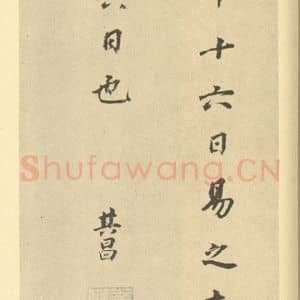 十六日易之
六日也 其昌
Shufawang.CN